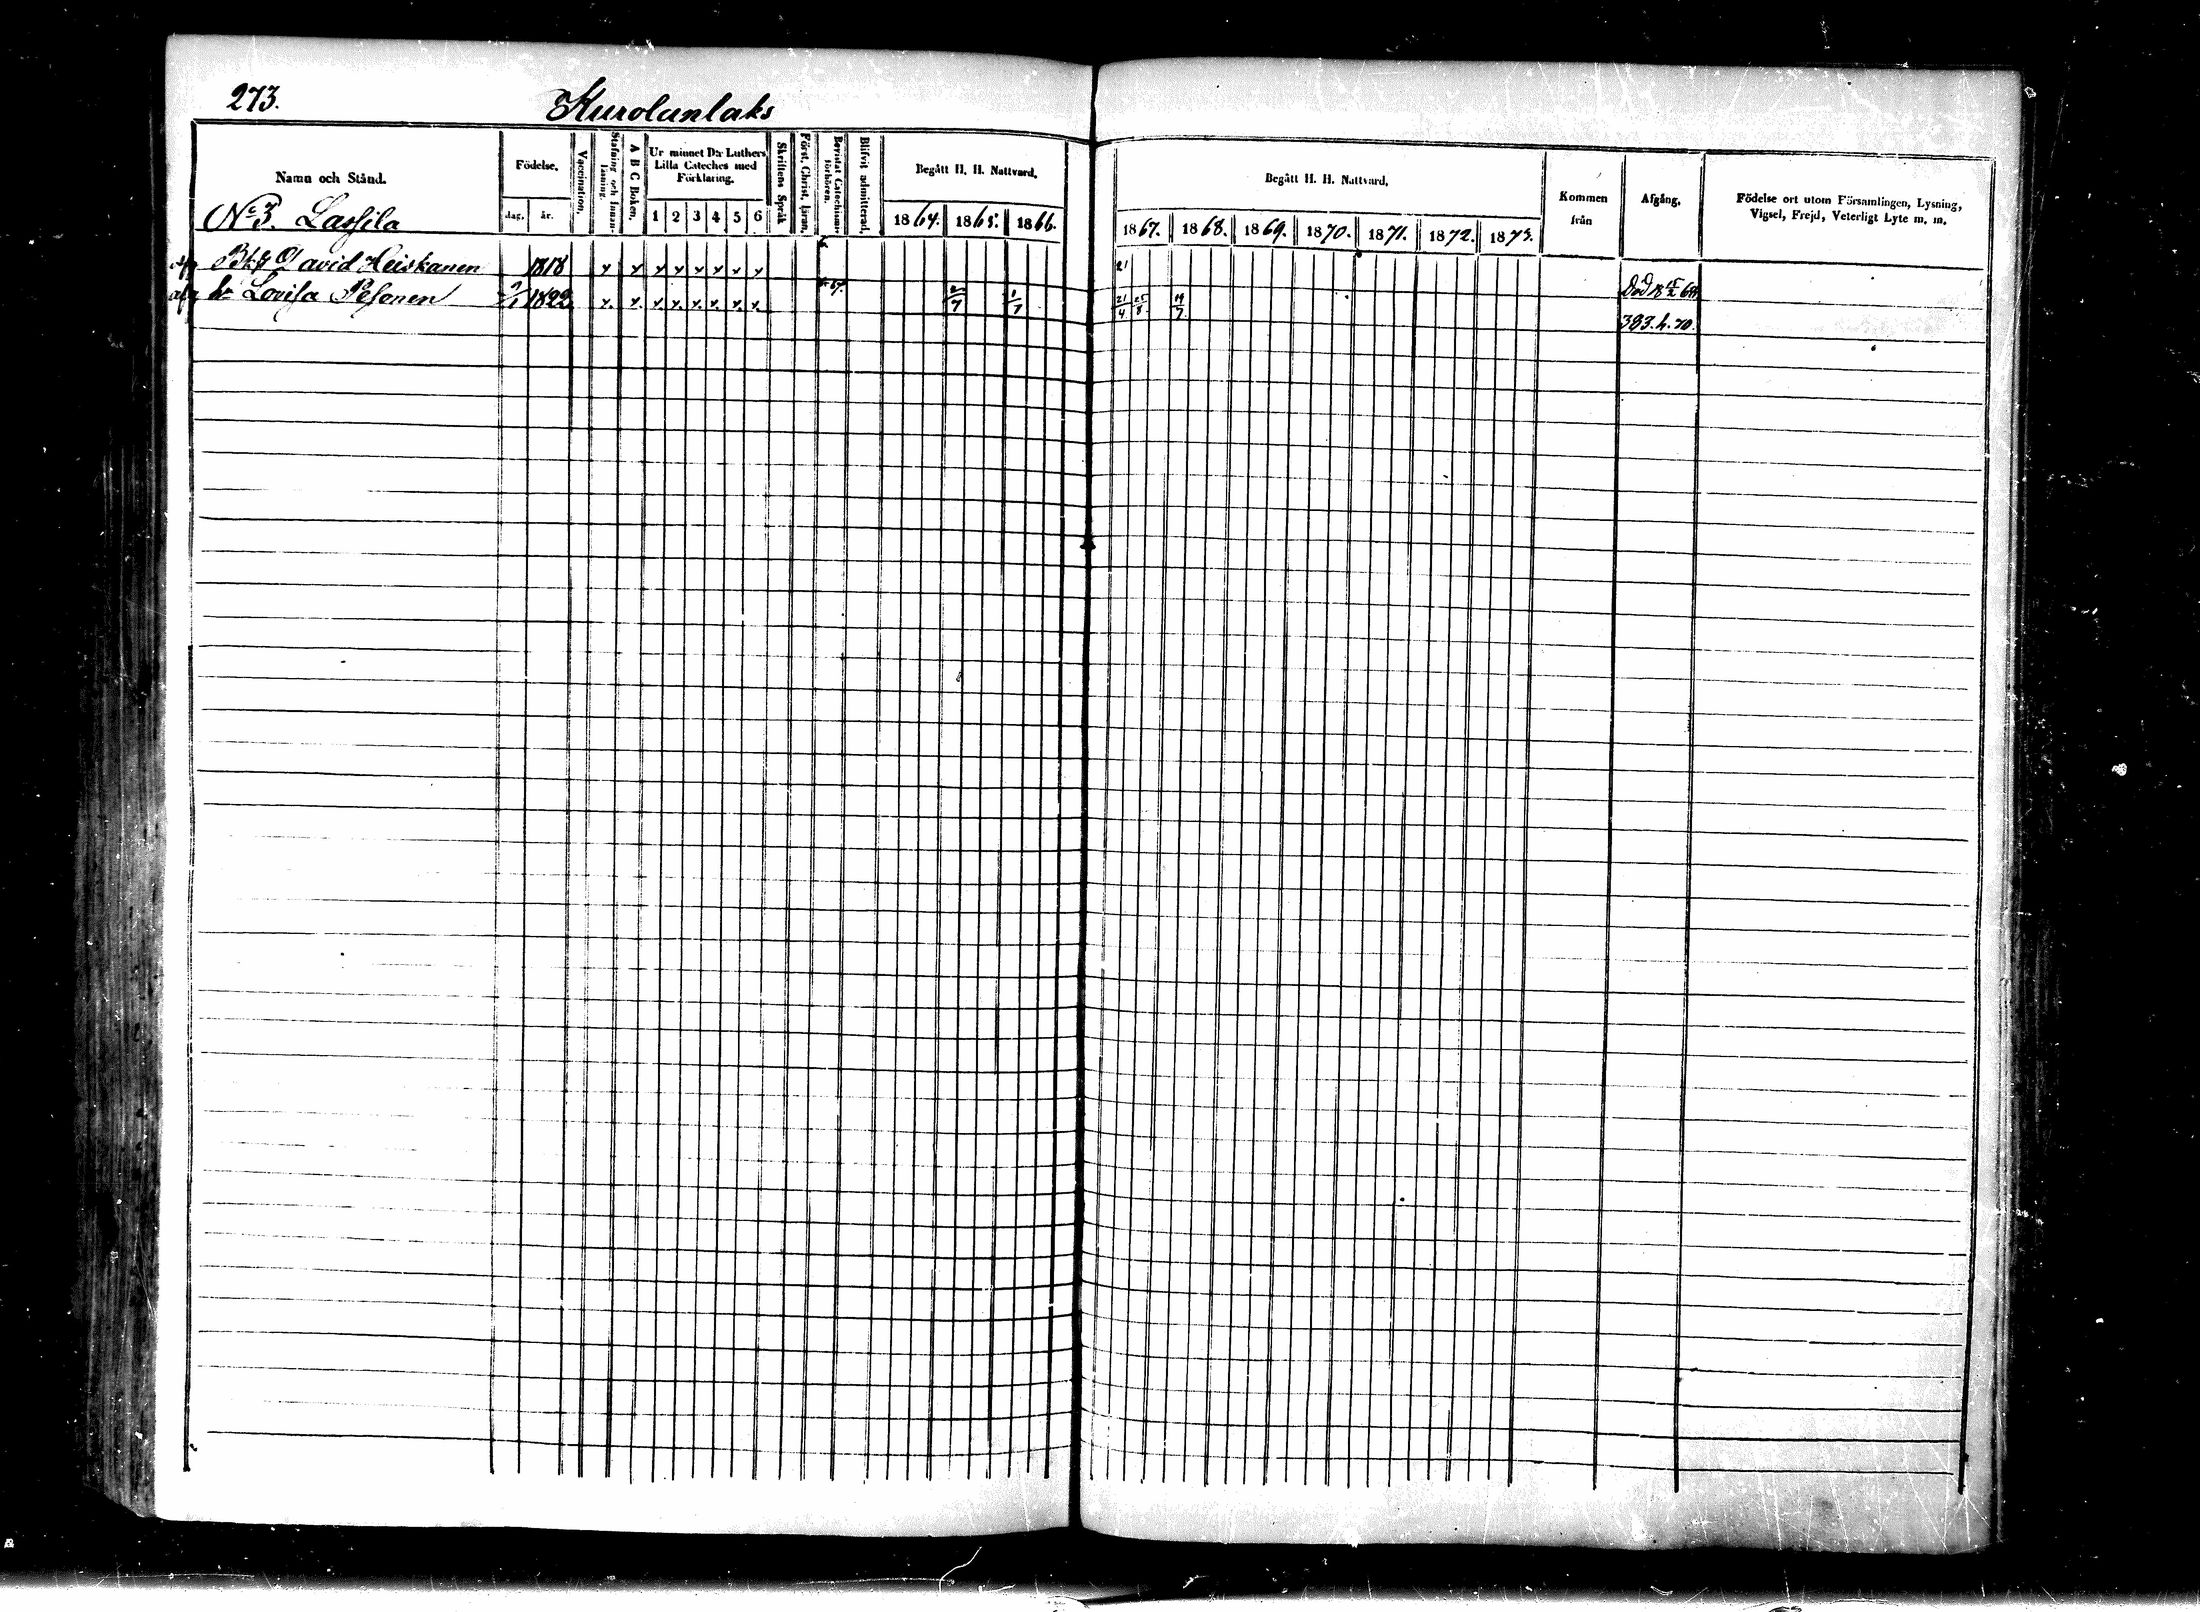 273.
Kurolanlaks
Namn och Stånd.
Födelse.
dag.
år.
Vaccination.
Stafning och Innanläsning.
A B C Boken.
Ur minnet D:r Luthers Lilla Cateches med Förklaring.
1 2 3 4 5 6
Skriftens Språk
Först. Christ. läran.
Bevistat Catechismiförhören.
Blifvit admitterad.
Begått H. H. Nattvard.
1864. 1865. 1866.
Begått H. H. Nattvard.
1867. 1868. 1869. 1870. 1871. 1872. 1873.
Kommen från
Afgång.
Födelse ort utom Församlingen, Lysning, Vigsel, Frejd, Veterligt Lyte m. m.
No 3. Lassila
David Heiskanen 1818 x x x x x x x x 21 Död 18 15/2 68
afg hu Lovisa Pesonen 1822 x. x. x. x. x. x. x. x. 67. 2/7 1/7 21/4 25/8 19/7 383. h. 70.